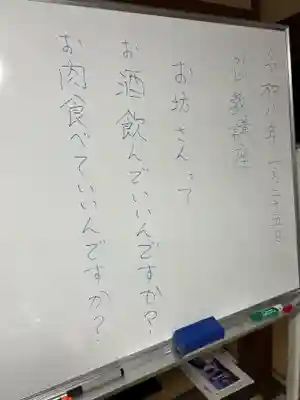 令和八年 一月二十五日
仏教講座
お坊さんって
お酒飲んでいいんですか？
お肉食べていいんですか？